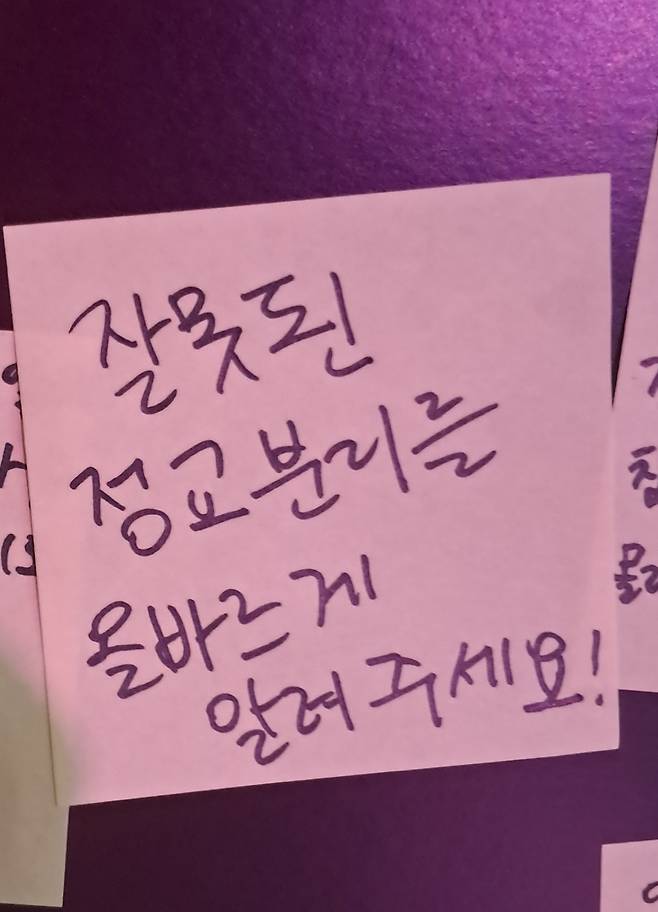 잘못된
정교분리를
올바르게
알려주세요!